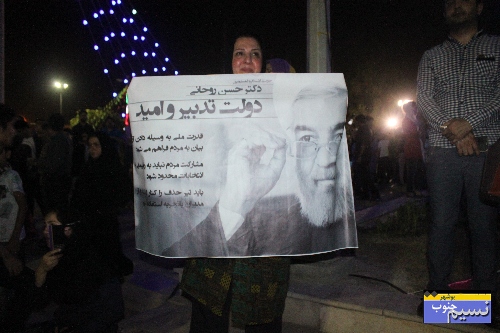 دکتر حسن روحانی
دولت تدبیر و امید
قدرت ملی به وسیله دادن
بیان به مردم فراهم می شود
مشارکت مردم نباید به
انتخابات محدود شود
باید تبر حذف را کنار
بوشهر
نسیم جنوب